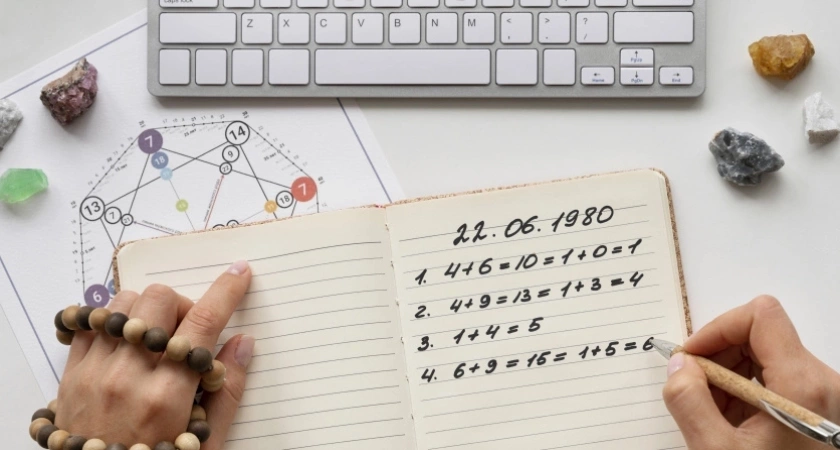 caps lock
Z X C V B N M < , > . ? /
PgUp
Home PgDn End
7 14
18 9
13 7 18 7
6
22.06.1980
1. 4+6=10=1+0=1
2. 4+9=13=1+3=4
3. 1+4=5
4. 6+9=15=1+5=6